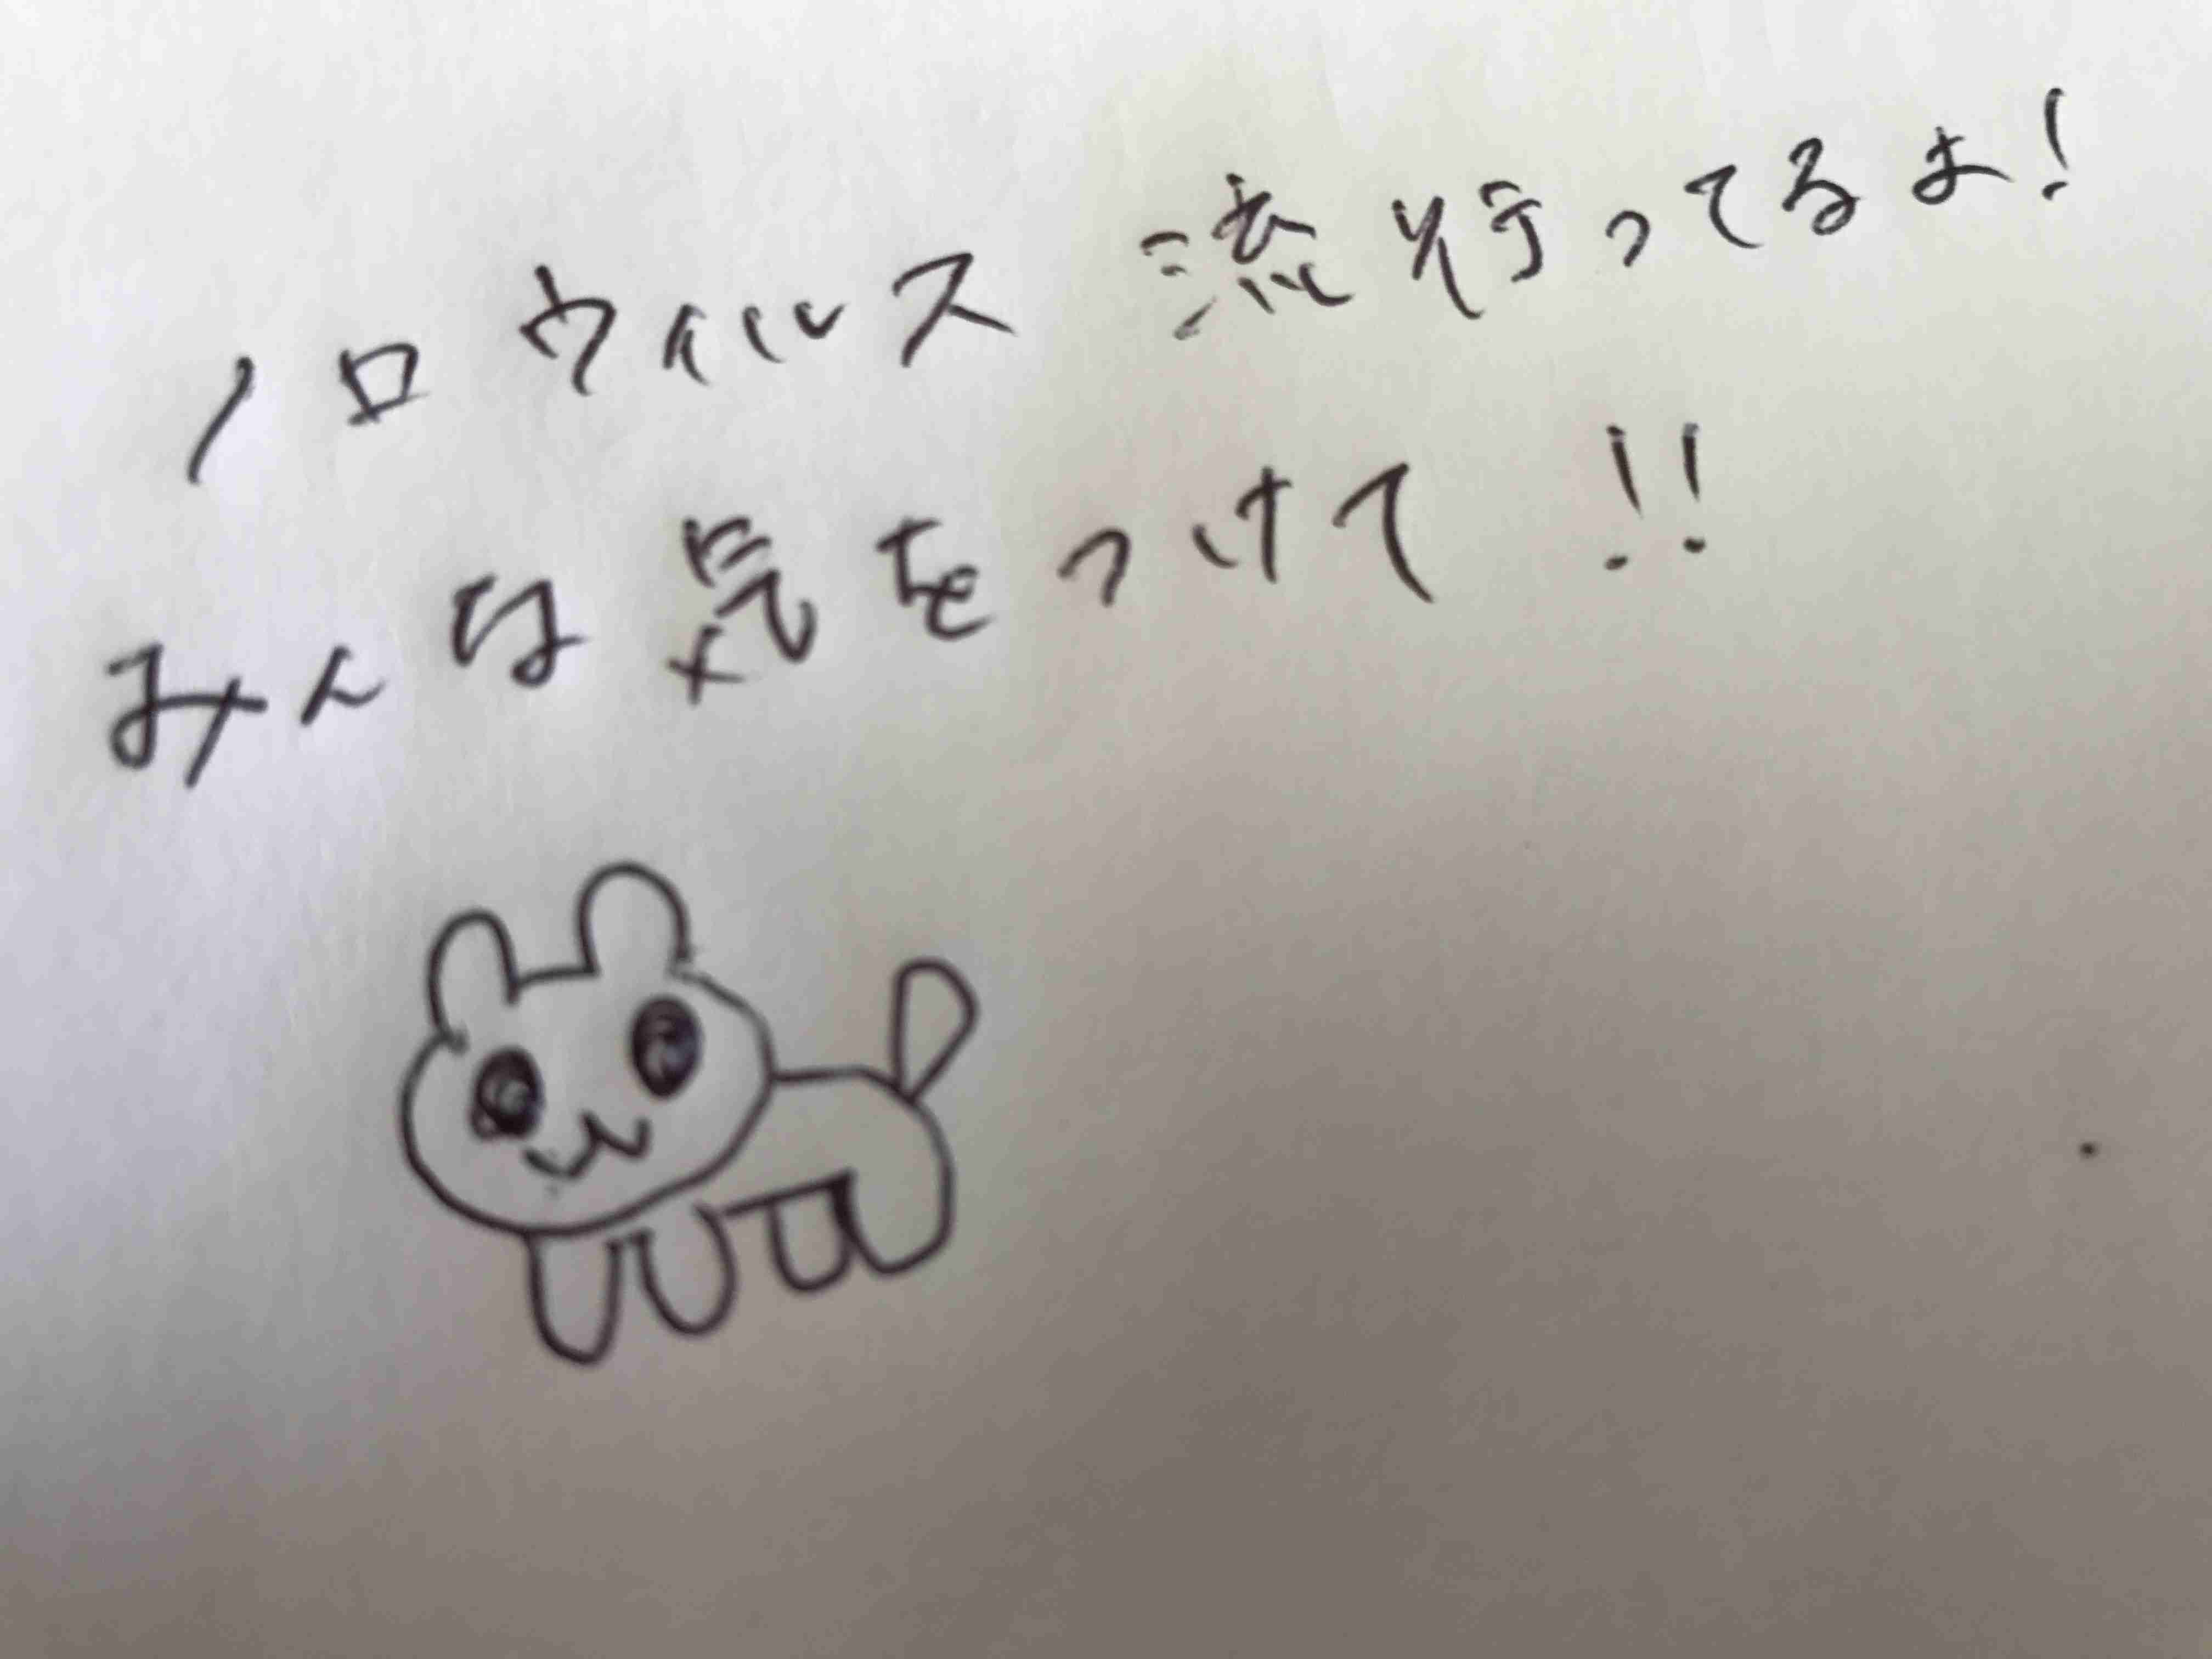 ノロウィルス 流行ってるよ!
みんな気をつけて!!